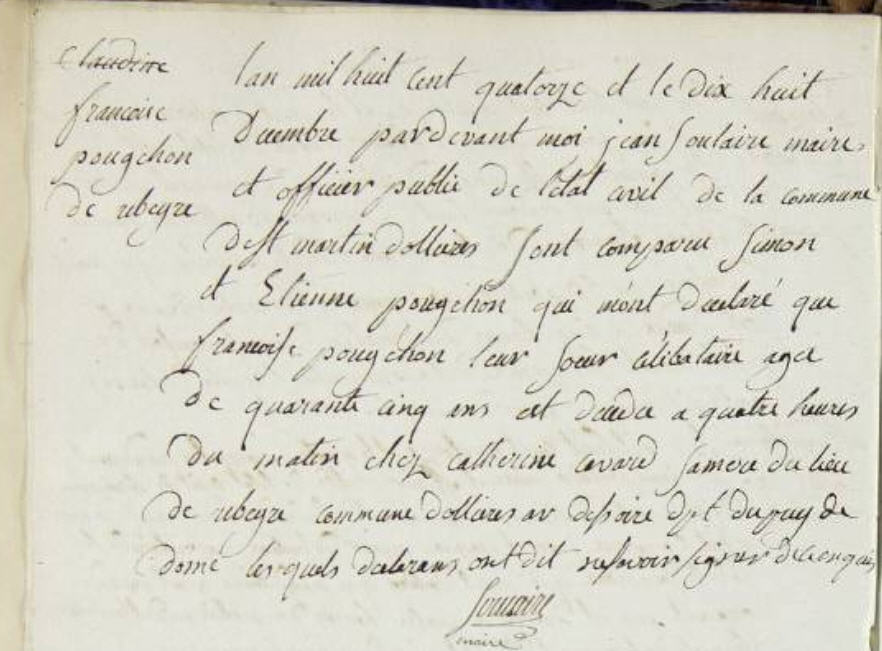 Claudine
francoise
pougehon
de ribeyre
lan mil huit cent quatorze et le dix huit
Decembre pardevant moi jean Soulaire maire
et officier public de letat civil de la commune
de St martin dollieres sont comparu simon
et Etienne pougehon qui mónt declaré que
francoise pougéhon leur soeur célibataire agee
de quarante cinq ans est decedee a quatre heures
du matin chez catherine sa mere du lieu
de ribeyre commune dollieres ar dissoire dpt du puy de
dome lesquels declarans ont dit ne savoir signer de ce enquis
Soulaire
maire